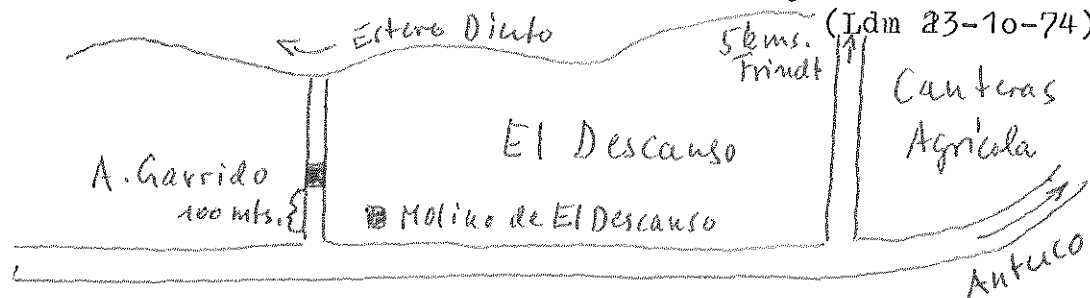 (Ldm 23-10-74)
Estero Diuto
5 kms.
Trindt
Canteras
Agrícola
El Descanso
A. Garrido
100 mts.
Molino de El Descanso
Antuco